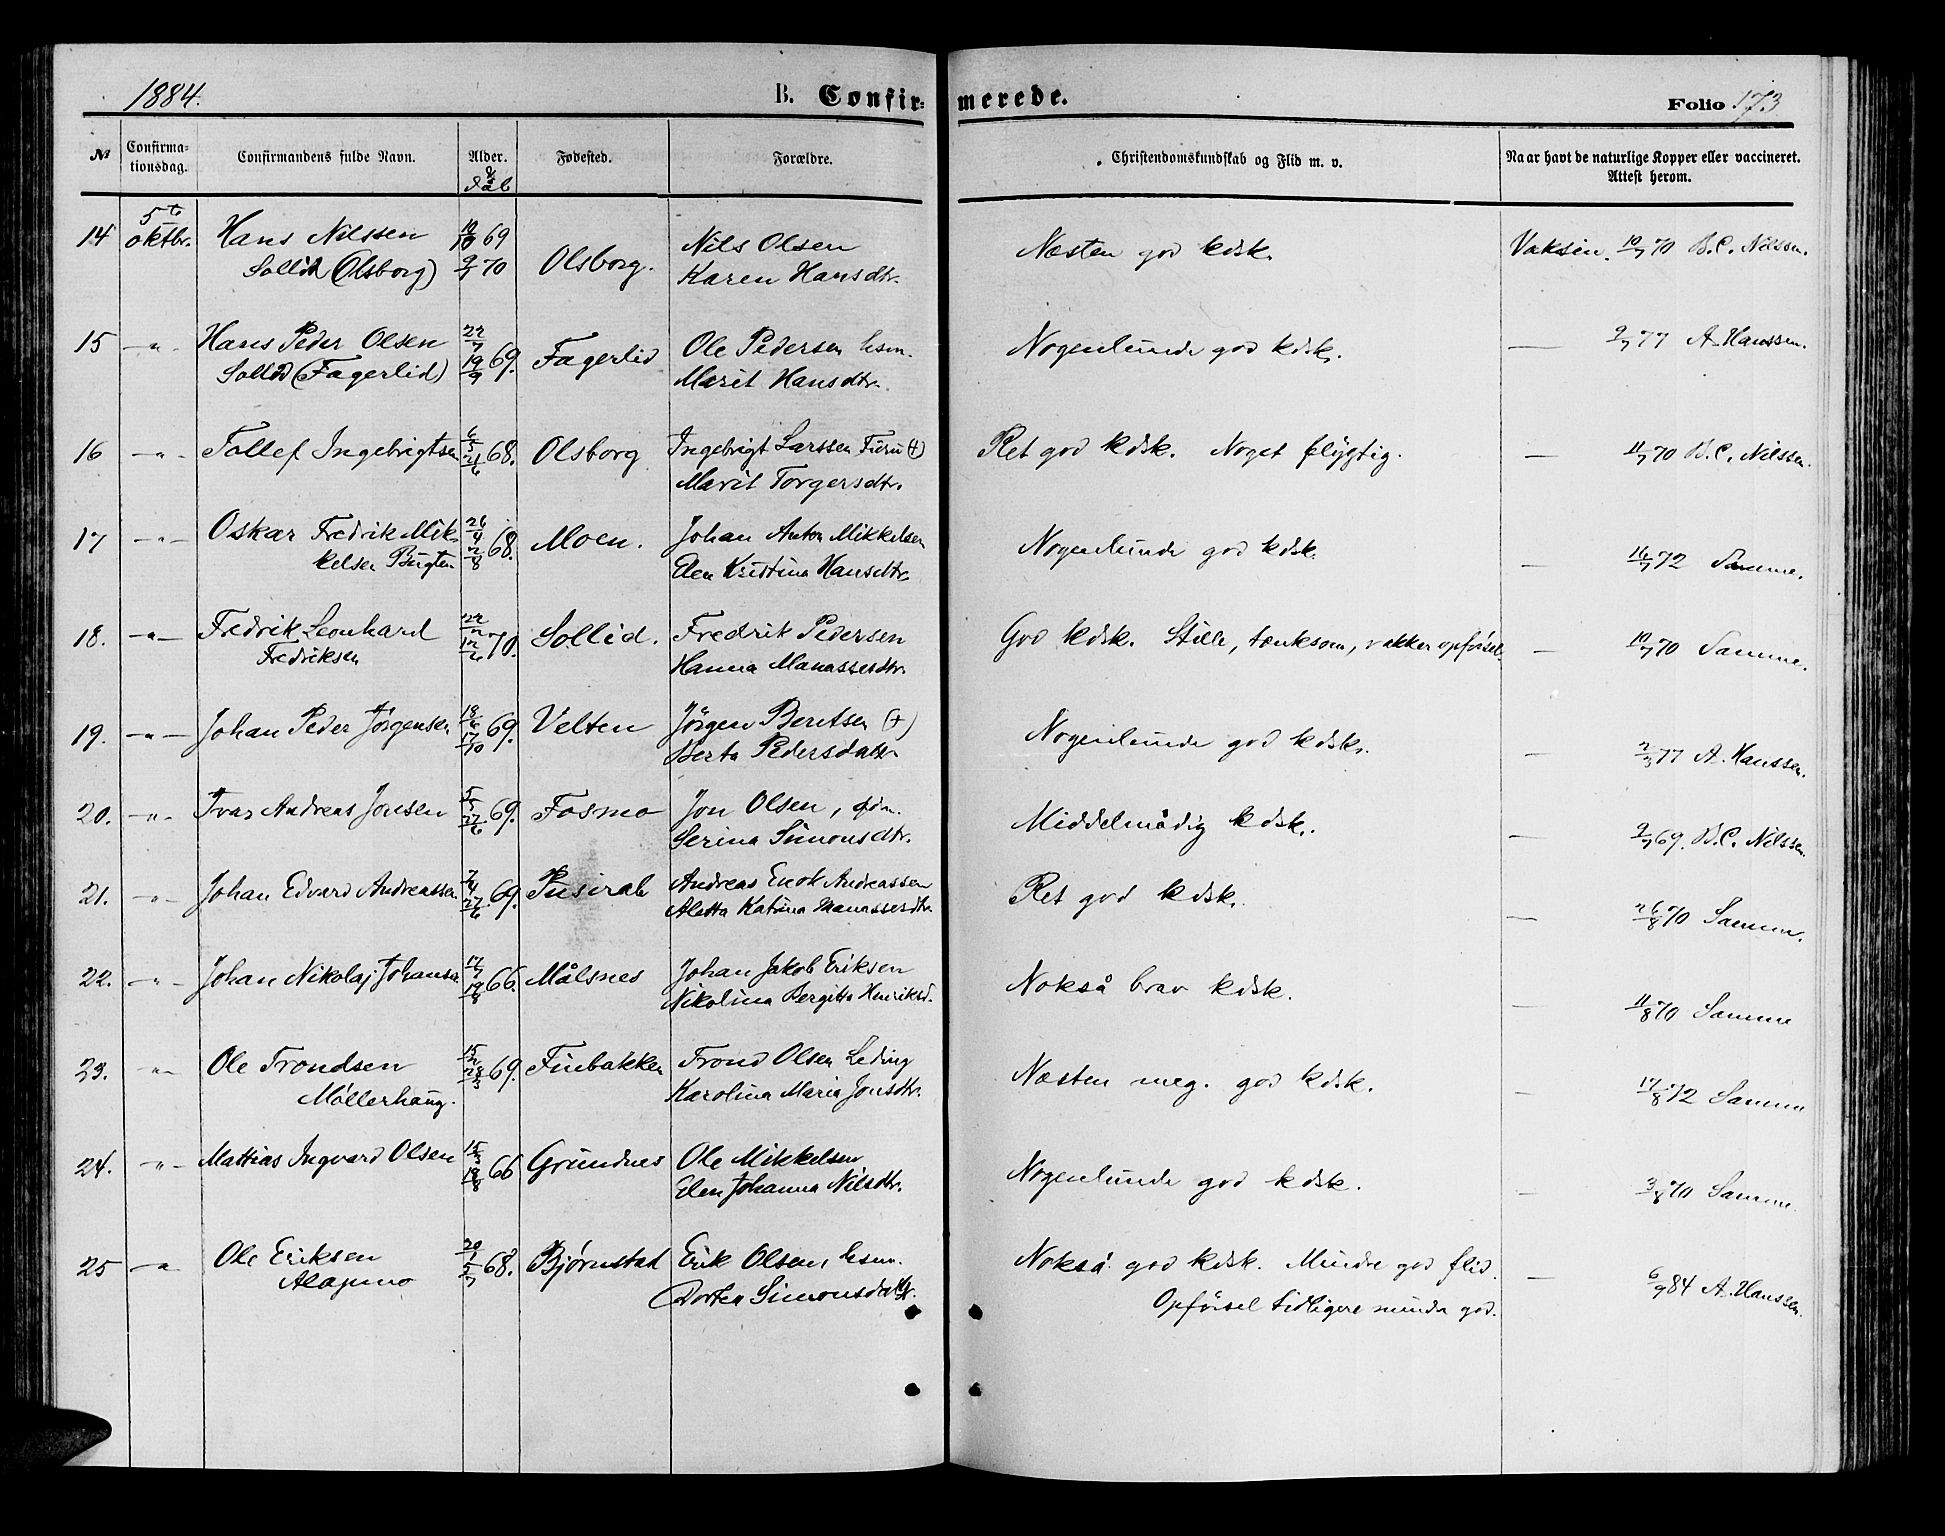 1884. B. Confir- merede. Folio 173
№ Confirma-tionsdag. Confirmandens fulde Navn. Alder. & dåb Fødested. Forældre. Christendomskundskab og Flid m. v. Naar havt de naturlige Kopper eller vaccineret. Attest herom.
14 5te oktbr. Hans Nilssen 10/10 69 Olsborg. Nils Olsen Næsten god kdsk. Vaksin. 10/7 70 B.C. Nilssen.
Sollid (Olsborg) 9/7 70 Karen Hansdtr.
15 -"- Hans Peder Olsen 22/7 Fagerlid Ole Pedersen hsm. Nogenlunde god kdsk. — 9/7 77 A. Hanssen.
Sollid (Fagerlid) 19/9 69. Marit Hansdtr.
16 -"- Tollef Ingebrigtsen 6/5 21/6 68. Olsborg Ingebrigt Larssen Furu (+) Ret god kdsk. Noget flygtig. — 11/7 70 B.C. Nilssen.
Marit Torgersdtr.
17 -"- Oskar Fredrik Mik- 26/4 2/8 68. Moen. Johan Anton Mikkelsen Nogenlunde god kdsk. — 16/7 72 Samme.
kelsen Bugten Elen Kristina Hansdtr.
18. -"- Fredrik Leonhard 22/2 12/6 70. Sollid. Fredrik Pedersen God kdsk. Stille, tænksom, vakker opførsel. — 10/7 70 Samme.
Fredriksen Hanna Manassesdtr.
19. -"- Johan Peder Jørgensen 18/6 17/10 69. Velten Jørgen Berntsen (+) Nogenlunde god kdsk. — 2/3 77 A. Hanssen.
Berta Pedersdatter
20. -"- Ivar Andreas Jonsen 5/5 27/6 69. Fosmo Jon Olsen, gdm. Middelmådig kdsk. — 9/7 69. B.C. Nilssen.
Serina Simonsdtr.
21. -"- Johan Edvard Andreassen 7/4 27/6 69. Andreas Enok Andreassen Ret god kdsk. — 26/8 70 Samme.
Aletta Katrina Manassesdtr.
22. -"- Johan Nikolaj Johansen 17/7 19/8 66. Målsnes Johan Jakob Eriksen Nokså brav kdsk. — 11/8 70 Samme
Nikolina Bergitta Henriksd.
23. -"- Ole Trondsen 15/2 28/3 69. Finbakken Trond Olsen Leding Næsten meg. god kdsk. — 17/8 72 Samme
Møllerhaug. Karolina Maria Jonsdtr.
24. -"- Mattias Ingvard Olsen 15/3 19/8 66 Grundnes Ole Mikkelsen Nogenlunde god kdsk. — 3/8 70 Samme.
Elen Johanna Nilsdtr.
25 -"- Ole Eriksen 20/1 5/7 68. Bjørnstad Erik Olsen hsm. Nokså god kdsk. Mindre god flid. — 6/9 84 A. Hanssen.
Alapmo Dortea Simonsdatter. Opførsel tidligere mindre god.